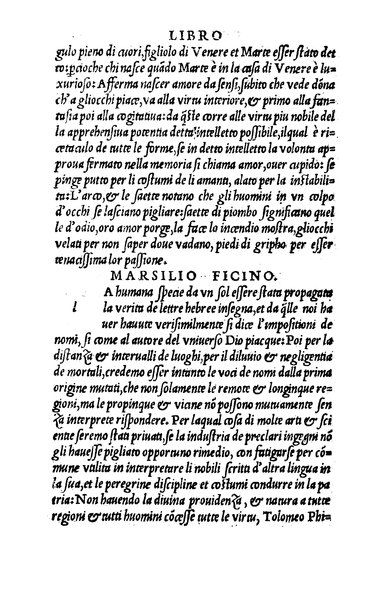 LIBRO
gulo pieno di cuori, figliolo di Venere et Marte esser stato det
to: pcioche chi nasce quãdo Marte è in la casa di Venere è lu-
xurioso: Afferma nascer amore da sensi, subito che vede dõna
ch'a gliocchi piace, va alla virtu interiore, & primo alla fan-
tasia poi alla cogitatiua: da q̃lle corre alle virtu piu nobile del
la apprehensiua potentia detta intelletto possibile, ilqual è ri-
cetaculo de tutte le forme, se in detto intelletto la volonta ap-
proua fermato nella memoria si chiama amor, ouer cupido: se
pinge putto per li costumi de li amanti, alato per la instabili-
ta: L'arco, & le saette notano che gli huomini in vn colpo
d'occhi se lasciano pigliare: saette di piombo significano quel
le d'odio, oro amor porge, la face lo incendio mostra, gliocchi
velati per non saper doue vadano, piedi di gripho per esser
tenacissima lor passione.
MARSILIO FICINO.
A humana specie da vn sol essere stata propagata
l la verita de lettre hebree insegna, et da q̃lle noi ha
uer hauute verisimilmente si dice l'impositioni de
nomi, si come al autore del vniuerso Dio piacque: Poi per la
distanza & interualli de luoghi, per il diluuio & negligentia
de mortali, credemo esser intanto le voci de nomi dalla prima
origine mutati, che non solamente le remote & longinque re-
gioni, ma le propinque & vicine nõ possono mutuamente sen
za interprete rispondere. Per laqual cosa di molte arti & sci
entie seremo stati priuati, se la industria de preclari ingegni nõ
gli hauesse pigliato opportuno rimedio, con fatigarse per cõ-
mune vtilita in interpretare li nobili scritti d'altra lingua in
la sua, et le peregrine discipline et costumi condurre in la pa
tria: Non hauendo la diuina prouidenza, & natura a tutte
regioni & tutti huomini cõcesse tutte le virtu, Tolomeo Phi-